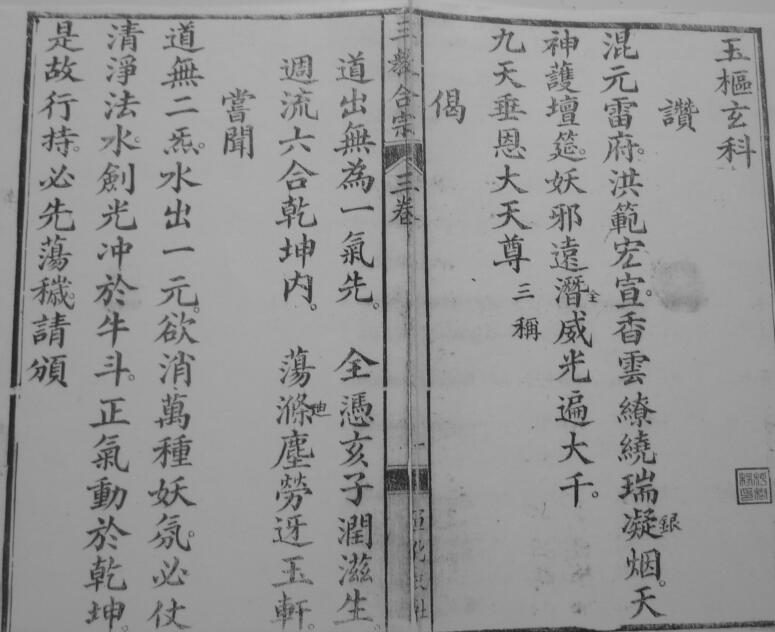 玉樞玄科
讚
混元雷府。洪範宏宣。香雲繚繞瑞凝烟。天
銀
神護壇筵。妖邪遠潛威光遍大千。
全
九天垂恩大天尊 三稱
偈
三教合宗 三卷 一
道出無為一氣先。 全憑亥子潤滋生。
週流六合乾坤内。 蕩滌塵勞迓玉軒。
迪
嘗聞
道無二炁。水出一元。欲消萬種妖氛。必仗
清淨法水。劍光冲於牛斗。正氣動於乾坤。
是故行持。必先蕩穢。請頒